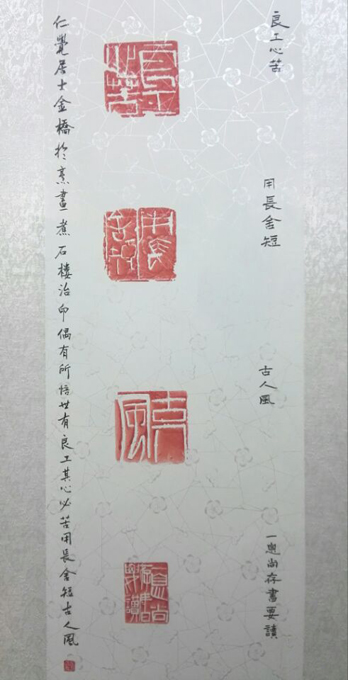 良工心苦
用長舍短
古人風
一息尚存書要讀
良工
心苦
用長
舍短
仁居士金橋於烹畫煮石樓治印偶有所悟世有良工其心必苦用長舍短古人風